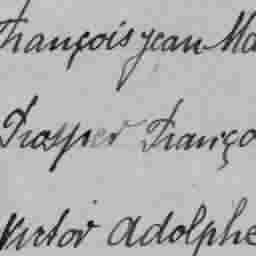 François Jean Ma
Prosper Franço
Victor Adolphe